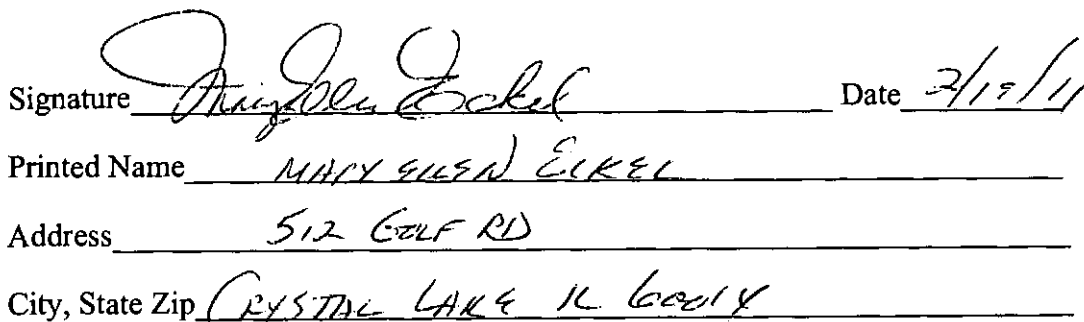 Signature Mary Ellen Eckel Date 2/19/11
Printed Name MARY ELLEN ECKEL
Address 512 GOLF RD
City, State Zip CRYSTAL LAKE IL 60014